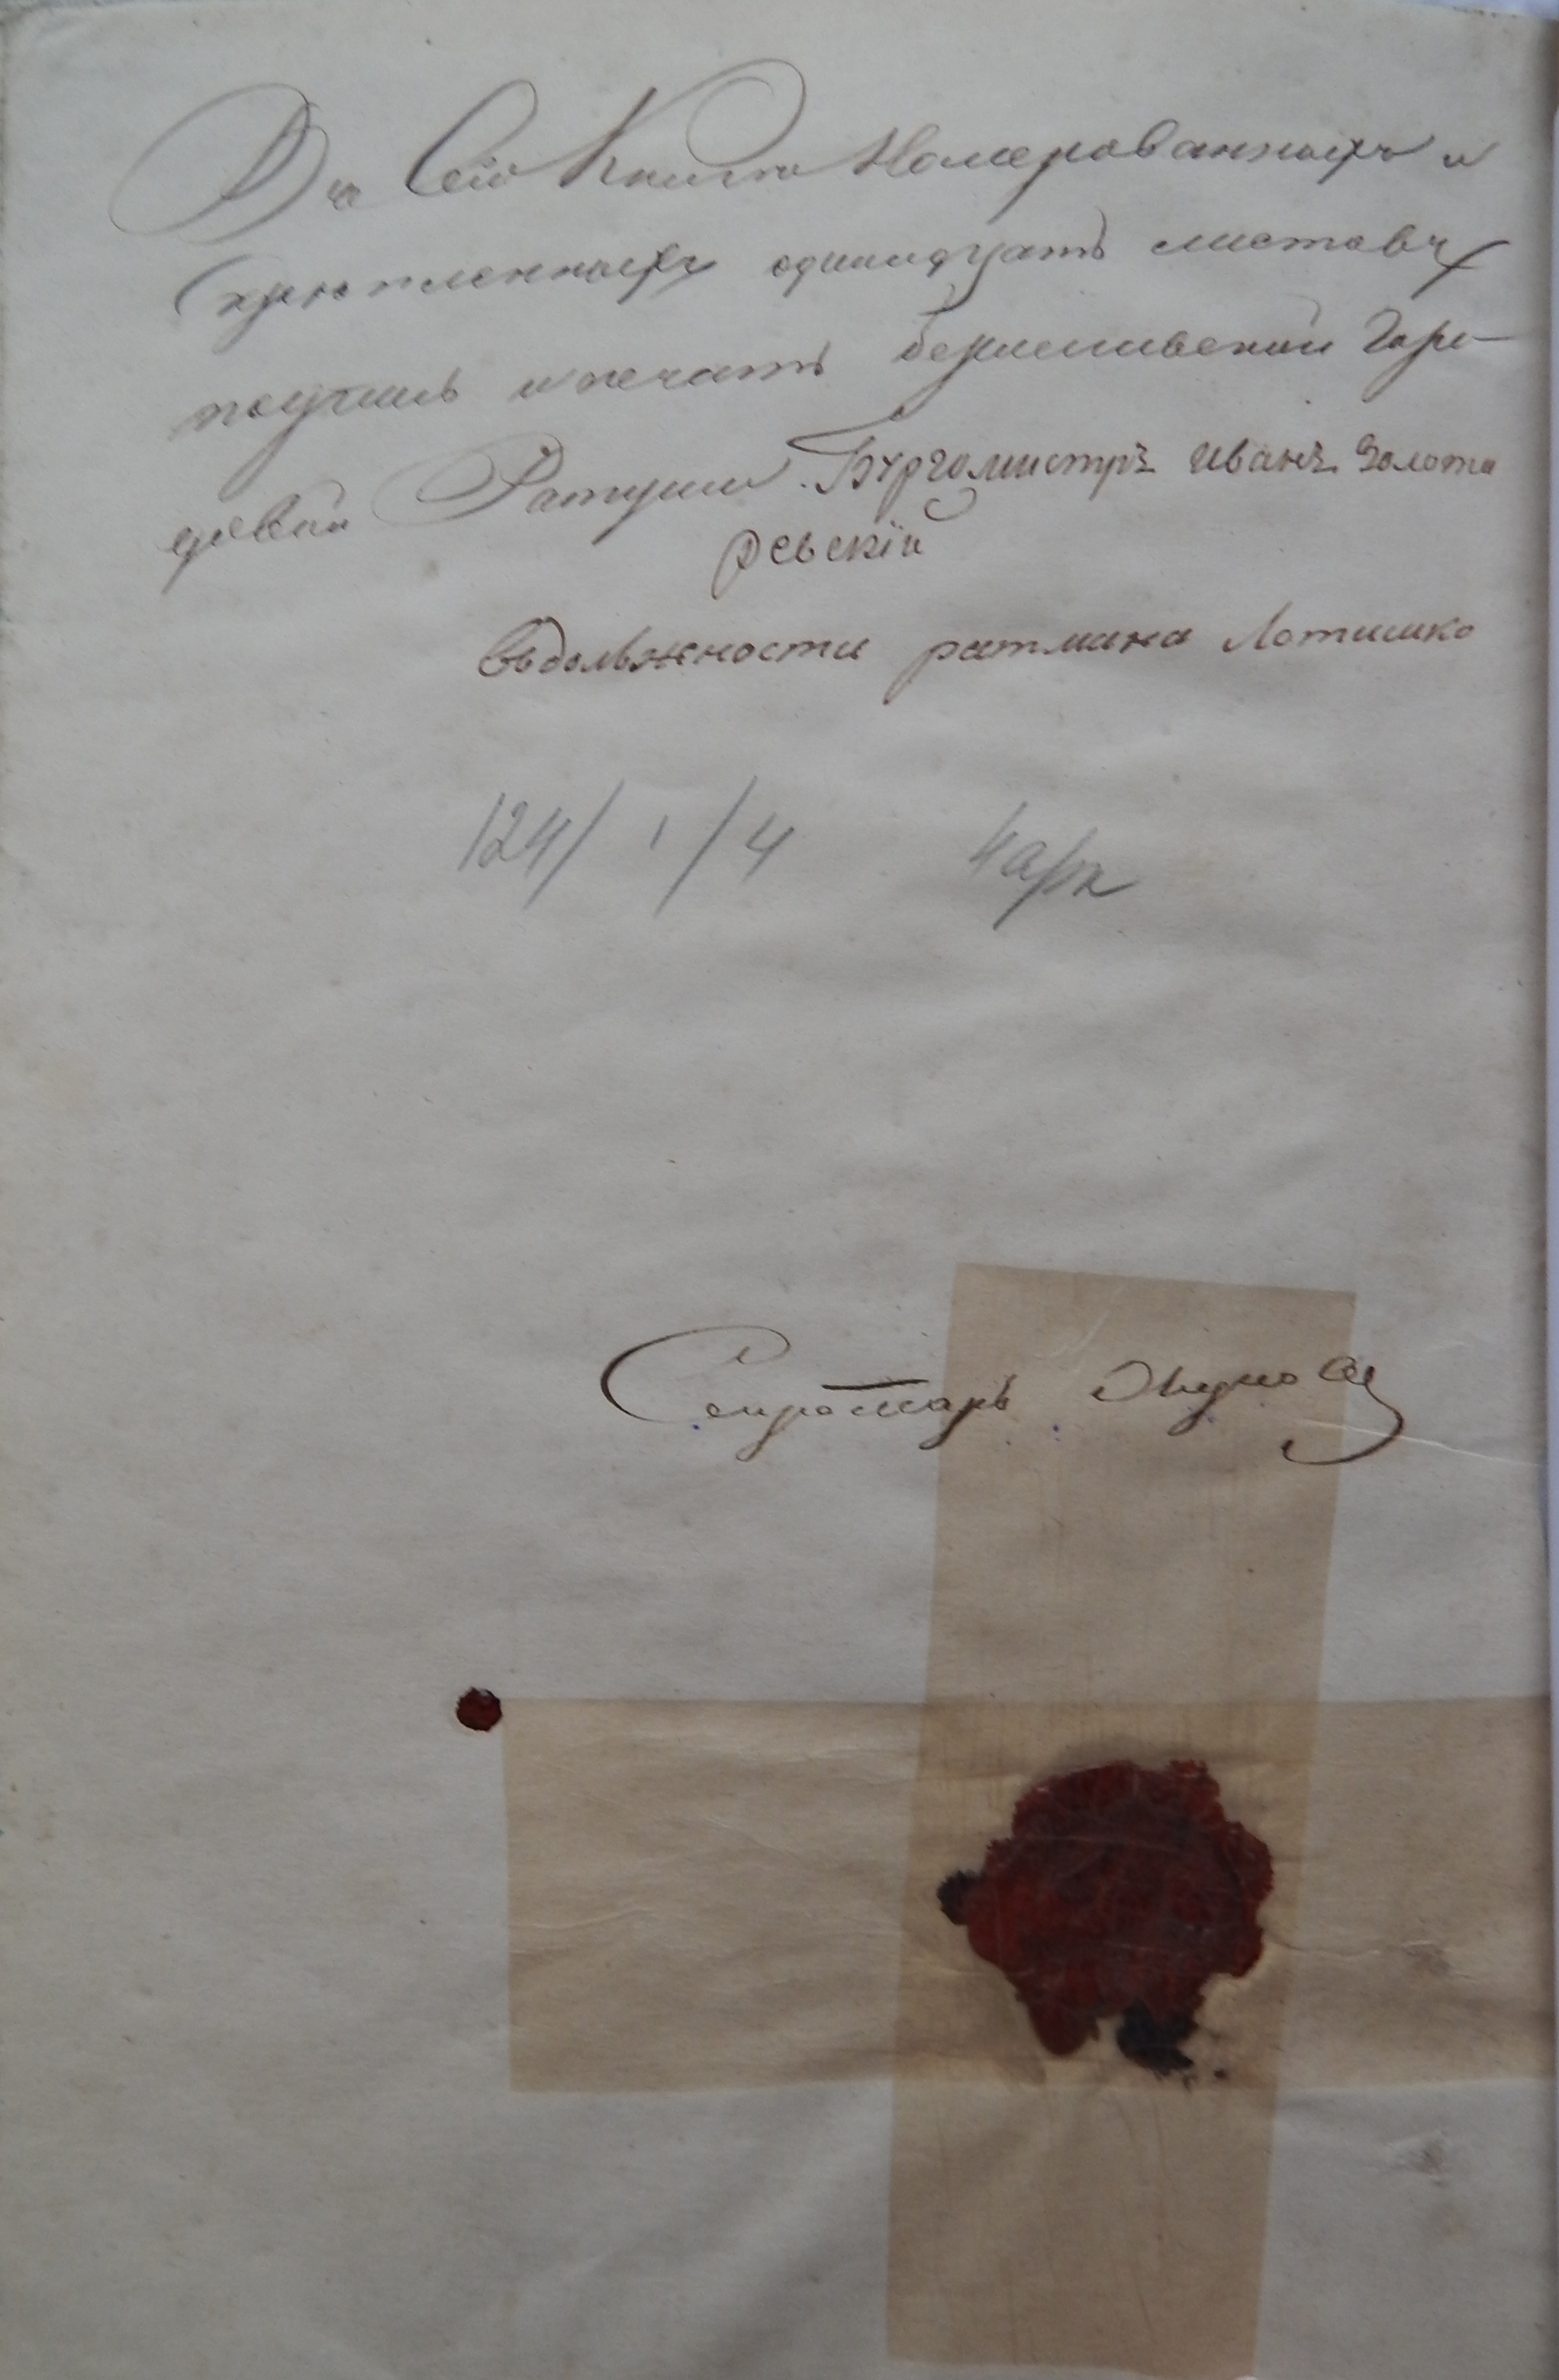 Въ Сей Книги Номерованныхъ и
скрепленныхъ одинадцать листовъ
подписъ и печать Бериславской Горо-
довой Ратуши. Бургомистръ Иванъ Золота
ревскій
Въдолжности ратмана Лотишко
124/ 1 /4 4 арк
Секретарь